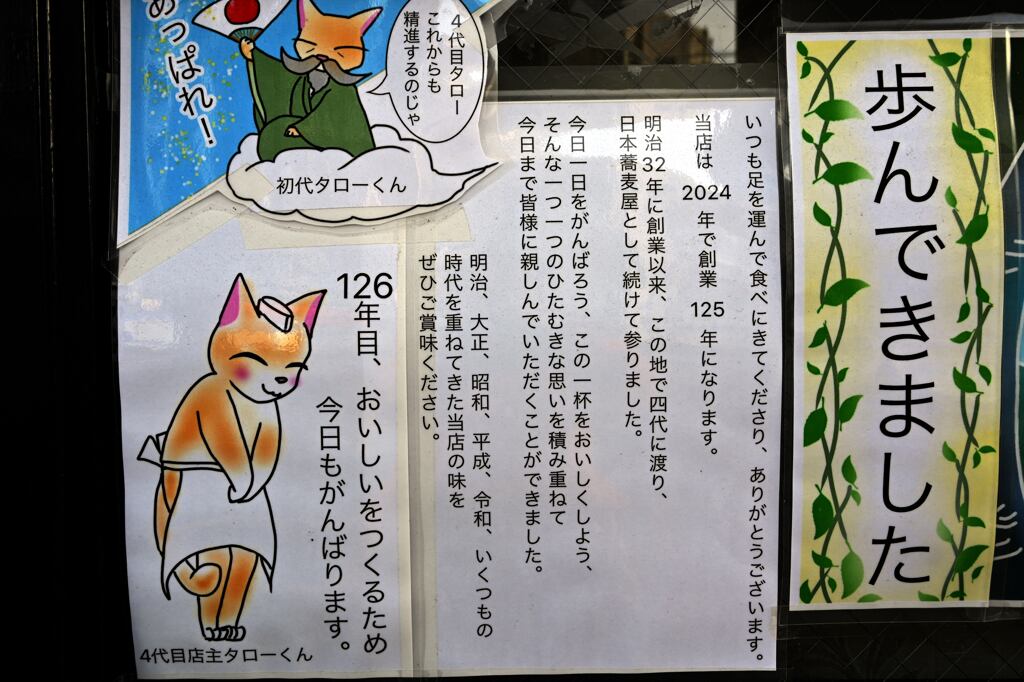 歩んできました
いつも足を運んで食べにきてくださり、ありがとうございます。
当店は 2024 年で創業 125 年になります。
明治 32 年に創業以来、この地で四代に渡り、
日本蕎麦屋として続けて参りました。
今日一日をがんばろう、この一杯をおいしくしよう、
そんな一つ一つのひたむきな思いを積み重ねて
今日まで皆様に親しんでいただくことができました。
明治、大正、昭和、平成、令和、いくつもの
時代を重ねてきた当店の味を
ぜひご賞味ください。
4代目タロー
これからも
精進するのじゃ
あっぱれ！
初代タローくん
126年目、おいしいをつくるため
今日もがんばります。
4代目店主タローくん